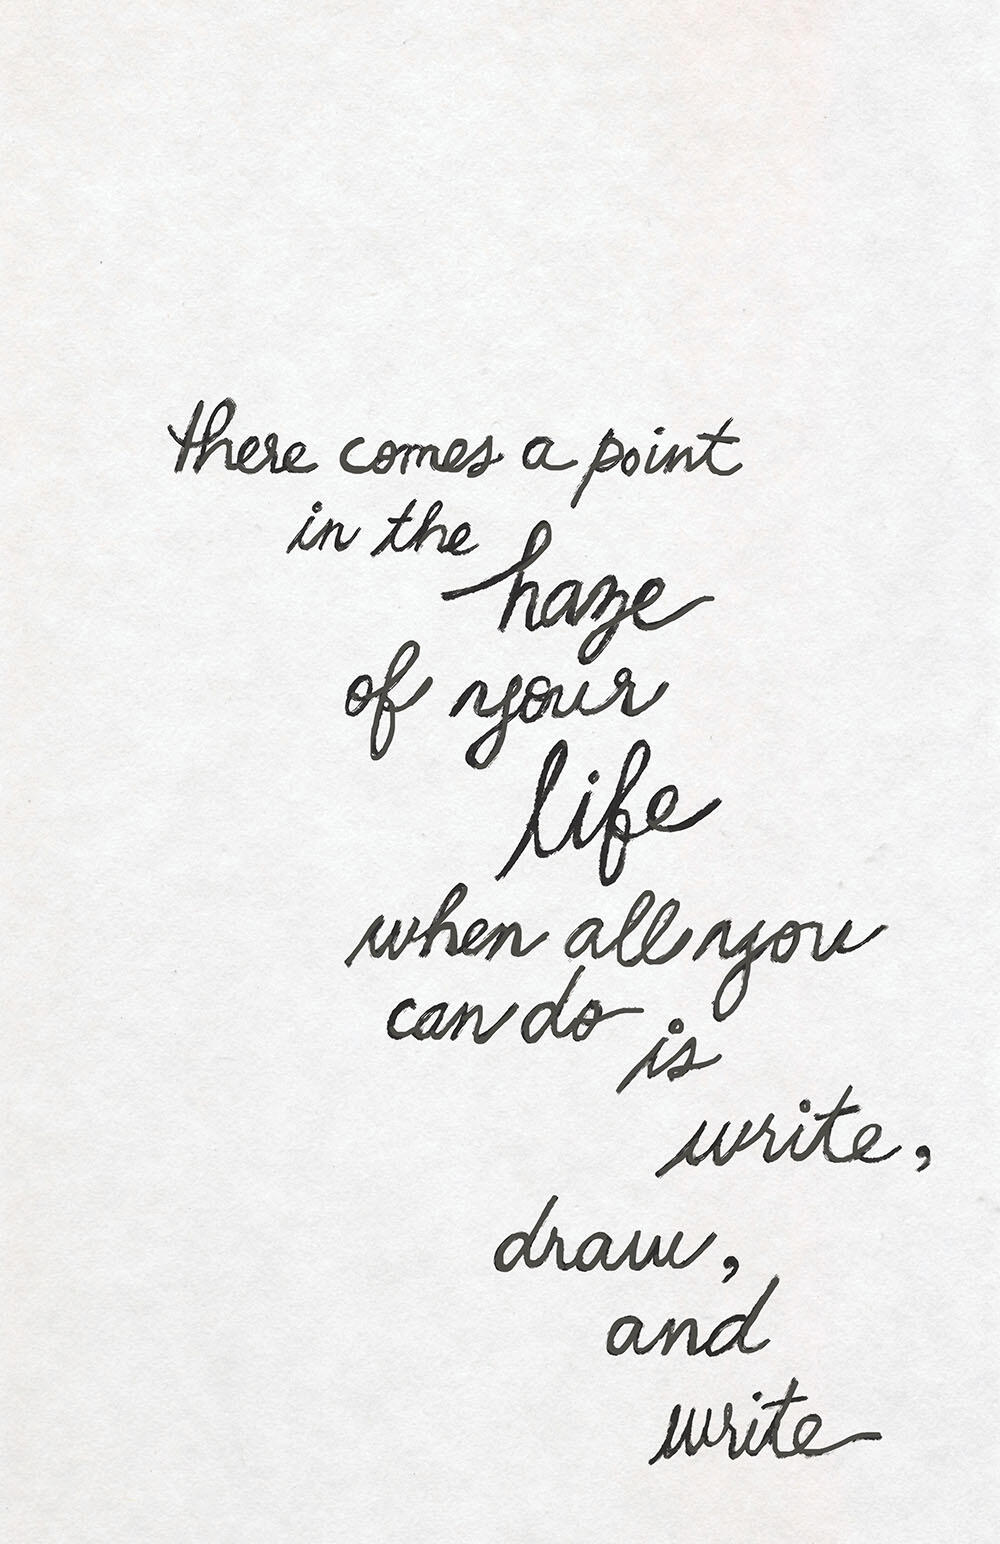 there comes a point
in the
haze
of your
life
when all you
can do
is
write,
draw,
and
write